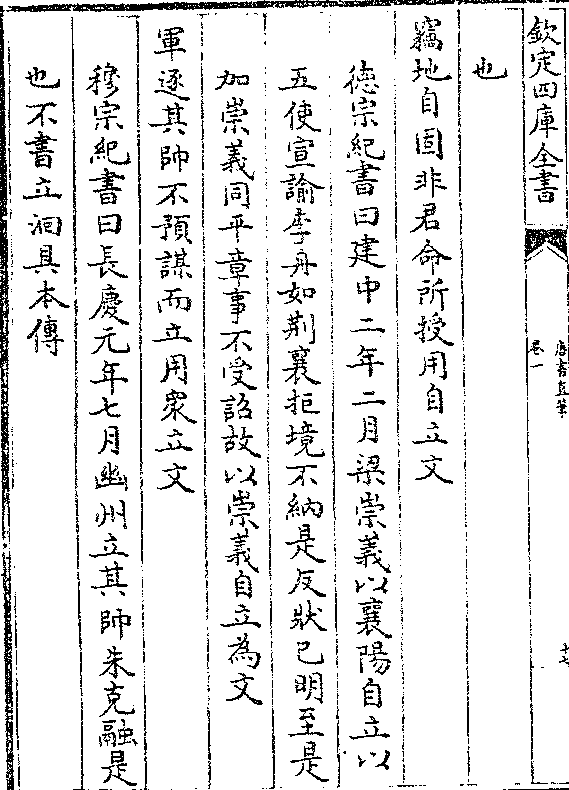 欽定四庫全書
唐書直筆
卷一
十七
也
竊地自固非君命所授用自立文
德宗紀書曰建中二年二月梁崇義以襄陽自立以
五使宣諭李舟如荆襄拒境不納是反狀已明至是
加崇義同平章事不受詔故以崇義自立為文
軍逐其帥不預謀而立用衆立文
穆宗紀書曰長慶元年七月幽州立其帥朱克融是
也不書立洄具本傳